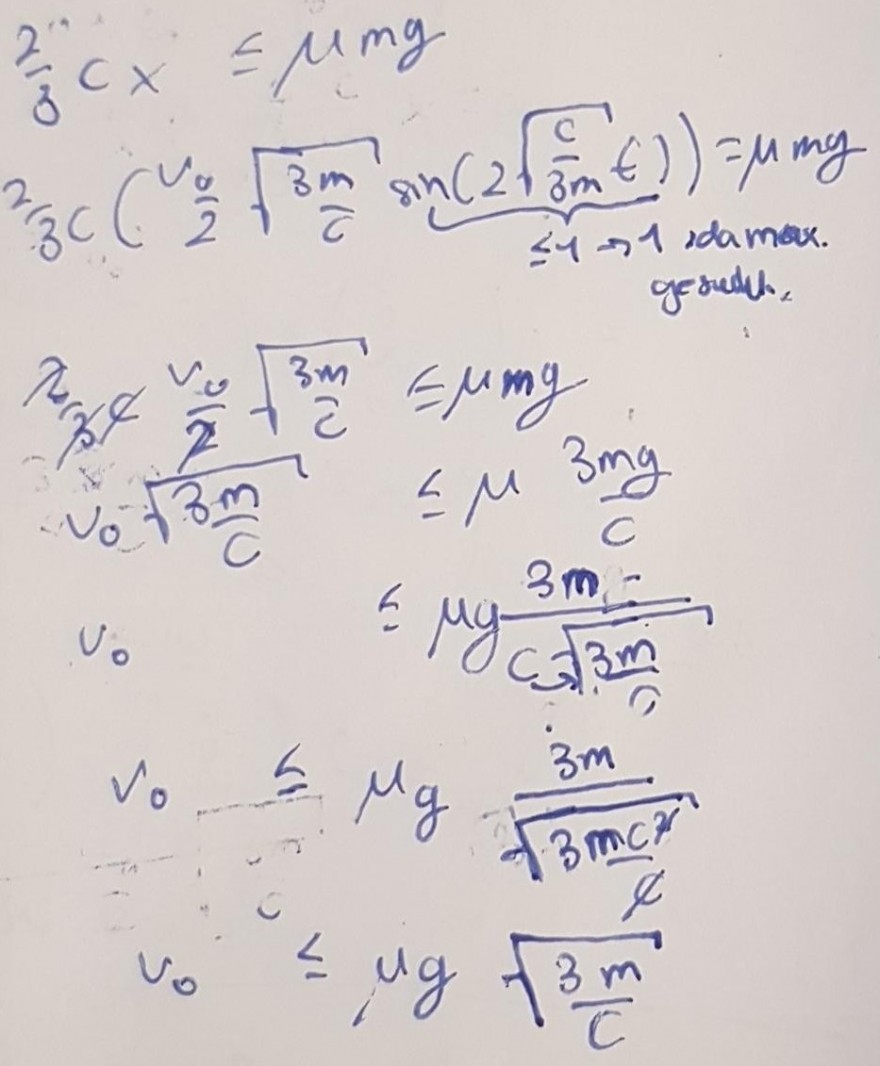 2/3 c x ≤ μ mg
2/3 c ( v₀/2 √(3m/c) sin(2 √(c/3m) t)) = μ mg
≤1 → 1 , da max.
gesucht.
2/3 c v₀/2 √(3m/c) ≤ μ mg
v₀ √(3m/c) ≤ μ 3mg/c
v₀ ≤ μg 3m/(c √(3m/c))
v₀ ≤ μg 3m/√(3mc²/c)
v₀ ≤ μg √(3m/c)